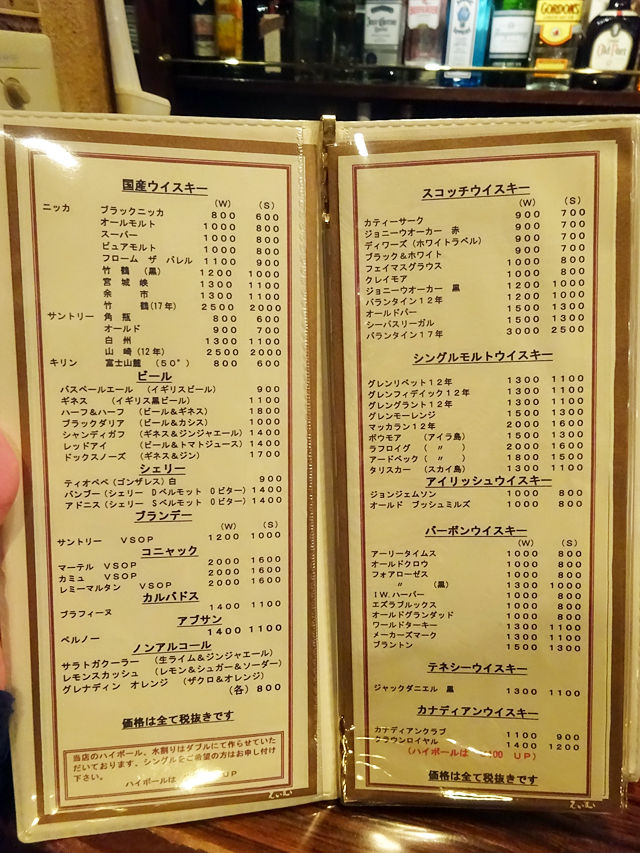 国産ウイスキー
(W) (S)
ニッカ ブラックニッカ 800 600
オールモルト 1000 800
スーパー 1000 800
ピュアモルト 1000 800
フローム ザ バレル 1100 900
竹鶴 (黒) 1200 1000
宮城峡 1300 1100
余市 1300 1100
竹鶴(17年) 2500 2000
サントリー 角瓶 800 600
オールド 900 700
白州 1300 1100
山崎(12年) 2500 2000
キリン 富士山麓 (50°) 800 600
ビール
バスペールエール (イギリスビール) 900
ギネス (イギリス黒ビール) 1100
ハーフ&ハーフ (ビール&ギネス) 1800
ブラックダリア (ビール&カシス) 1000
シャンディガフ (ギネス&ジンジャエール) 1400
レッドアイ (ビール&トマトジュース) 1400
ドックスノーズ (ギネス&ジン) 1700
シェリー
ティオペペ(ゴンザレス)白 900
バンブー(シェリー Dベルモット Oビター) 1400
アドニス(シェリー Sベルモット Oビター) 1400
ブランデー
(W) (S)
サントリー VSOP 1200 1000
コニャック
マーテル VSOP 2000 1600
カミュ VSOP 2000 1600
レミーマルタン VSOP 2000 1600
カルバドス
ブラフィーヌ 1400 1100
アブサン
ペルノー 1400 1100
ノンアルコール
サラトガクーラー (生ライム&ジンジャエール)
レモンスカッシュ (レモン&シュガー&ソーダー)
グレナディン オレンジ (ザクロ&オレンジ)
(各) 800
価格は全て税抜きです
当店のハイボール、水割りはダブルにて作らせていた
だいております、シングルをご希望の方はお申し付け
下さい。
ハイボールは UP
スコッチウイスキー
(W) (S)
カティーサーク 900 700
ジョニーウオーカー 赤 900 700
ディワーズ(ホワイトラベル) 900 700
ブラック&ホワイト 900 700
フェイマスグラウス 1000 800
クレイモア 1000 800
ジョニーウオーカー 黒 1200 1000
バランタイン12年 1200 1000
オールドパー 1500 1300
シーバスリーガル 1500 1300
バランタイン17年 3000 2500
シングルモルトウイスキー
グレンリベット12年 1300 1100
グレンフィデイック12年 1300 1100
グレングラント12年 1300 1100
グレンモーレンジ 1500 1300
マッカラン12年 2000 1600
ボウモア (アイラ島) 1500 1300
ラフロイグ ( 〃 ) 2000 1600
アードベック( 〃 ) 1800 1500
タリスカー (スカイ島) 1300 1100
アイリッシュウイスキー
ジョンジェムソン 1000 800
オールド ブッシュミルズ 1000 800
バーボンウイスキー
(W) (S)
アーリータイムス 1000 800
オールドクロウ 1000 800
フォアローゼス 1000 800
〃 (黒) 1300 1000
I.W.ハーパー 1000 800
エズラブルックス 1000 800
オールドグランダッド 1000 800
ワールドターキー 1300 1100
メーカーズマーク 1300 1100
ブラントン 1500 1300
テネシーウイスキー
ジャックダニエル 黒 1300 1100
カナディアンウイスキー
カナディアンクラブ 1100 900
クラウンロイヤル 1400 1200
(ハイボールは 00 UP)
価格は全て税抜きです
GORDON'S
Old Parr